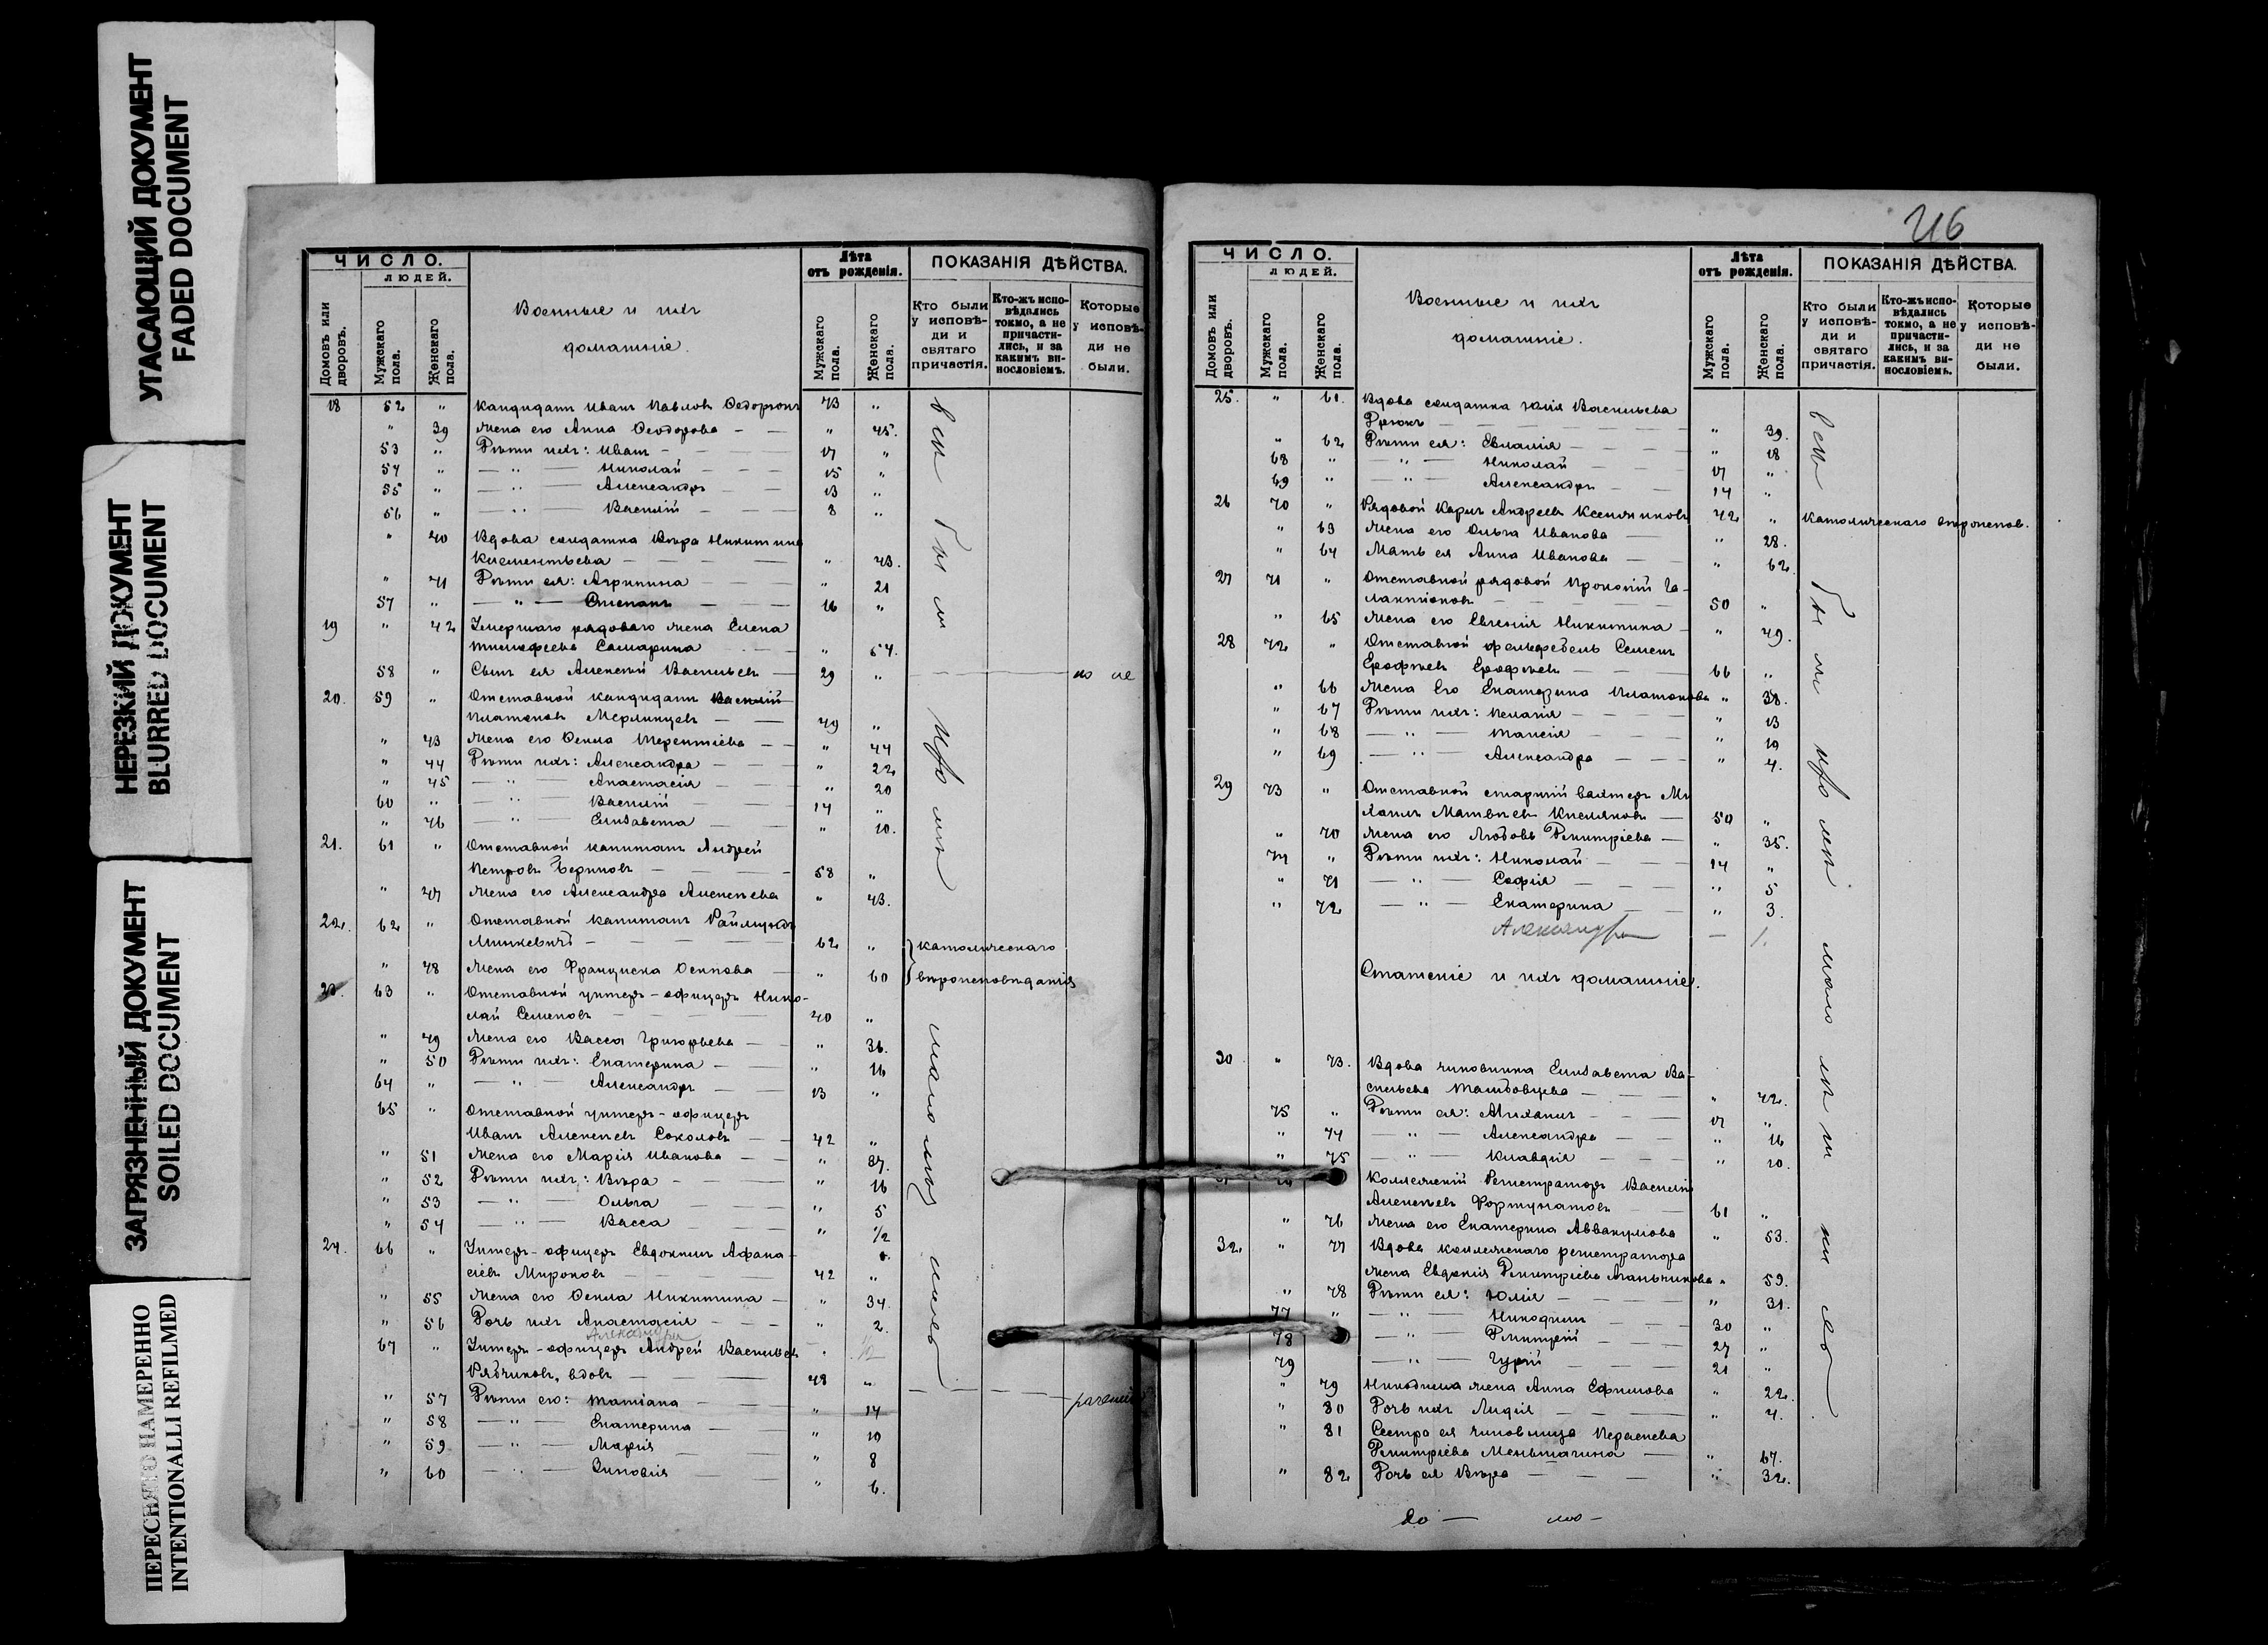 УГАСАЮЩИЙ ДОКУМЕНТ
FADED DOCUMENT
НЕРЕЗКИЙ ДОКУМЕНТ
BLURRED DOCUMENT
ЗАГРЯЗНЕННЫЙ ДОКУМЕНТ
SOILED DOCUMENT
ПЕРЕСНЯТО НАМЕРЕННО
INTENTIONALLI REFILMED
ЧИСЛО.
ЛЮДЕЙ.
Домовъ или дворовъ.
Мужскаго пола.
Женскаго пола.
Военные и ихъ
домашніе.
Лѣта
отъ рожденія.
Мужскаго пола.
Женскаго пола.
ПОКАЗАНІЯ ДѢЙСТВА.
Кто были у исповѣди и святаго причастія.
Кто-жъ исповѣдались токмо, а не причастились, и за какимъ винословіемъ.
Которые у исповѣди не были.
18 52 " Кандидатъ Иванъ Павловъ 43 "
" 39 Жена его Анна Ѳеодорова " 45.
53 " Дѣти ихъ: Иванъ 17 "
54 " — " — Николай 15 "
55 " — " — Александръ 13 "
56 " — " — Василій 8 "
" 40 Вдова солдатка Вѣра Никитина
Клементьева " 43.
" 41 Дѣти ея: Агрипина " 21
57 " — " — Степанъ 16 "
19 " 42 Умершаго рядоваго жена Елена
Тимофеева Самарина " 54.
58 " Сынъ ея Алексѣй Васильевъ 29 "
20. 59 " Отставной кандидатъ Василій
Платоновъ Мерлинцевъ 49 "
" 43 Жена его Ѳекла Терентіева " 44
" 44 Дѣти ихъ: Александра " 22
" 45 — " — Анастасія " 20
60 " — " — Василій 14 "
" 46 — " — Елисавета " 10.
21. 61 " Отставной капитанъ Андрей
Петровъ 58 "
" 47 Жена его Александра Алексѣева " 43.
22. 62 " Отставной капитанъ Раймундъ
Минкевичъ 62 " католическаго
" 48 Жена его Франциска Осипова " 60 вѣроисповѣданія
23. 63 " Отставной унтеръ-офицеръ Нико-
лай Семеновъ 40 "
" 49 Жена его Васса Григорьева " 36.
" 50 Дѣти ихъ: Екатерина " 16
64 " — " — Александръ 13 "
65 " Отставной унтеръ-офицеръ
Иванъ Алексѣевъ Соколовъ 42 "
" 51 Жена его Марія Иванова " 37.
" 52 Дѣти ихъ: Вѣра " 16
" 53 — " — Ольга " 5
" 54 — " — Васса " 1/2
24. 66 " Унтеръ-офицеръ Евдокимъ Афана-
сіевъ Мироновъ 42 "
" 55 Жена его Ѳекла Никитина " 34.
" 56 Дочь ихъ Анастасія " 2.
Александра 1/2
67 " Унтеръ-офицеръ Андрей Васильевъ
Рябчиковъ, вдовъ 48 "
" 57 Дѣти его: Татіана " 14
" 58 — " — Екатерина " 10
" 59 — " — Марія " 8
" 60 — " — Зиновія " 6.
всѣ были
216
ЧИСЛО.
ЛЮДЕЙ.
Домовъ или дворовъ.
Мужскаго пола.
Женскаго пола.
Военные и ихъ
домашніе.
Лѣта
отъ рожденія.
Мужскаго пола.
Женскаго пола.
ПОКАЗАНІЯ ДѢЙСТВА.
Кто были у исповѣди и святаго причастія.
Кто-жъ исповѣдались токмо, а не причастились, и за какимъ винословіемъ.
Которые у исповѣди не были.
25. " 61. Вдова солдатка Юлія Васильева
" 39.
" 62 Дѣти ея: Евлалія " 18
68 " — " — Николай 17 "
69 " — " — Александръ 14 "
26 70 " Рядовой Карлъ Андреевъ 42 " католическаго вѣроисповѣд.
" 63 Жена его Ольга Иванова " 28.
" 64 Мать ея Анна Иванова " 62
27 71 " Отставной рядовой Прокопій Га-
лактіоновъ 50 "
" 65 Жена его Евгенія Никитина " 49.
28 72 " Отставной фельдфебель Семенъ
Ерофѣевъ Ерофѣевъ 66 "
" 66 Жена его Екатерина Платонова " 38.
" 67 Дѣти ихъ: Пелагія " 13
" 68 — " — Таисія " 10
" 69 — " — Александра " 4.
29 73 " Отставной старшій вахтеръ Ми-
хаилъ Матвѣевъ Кисляковъ 50 "
" 70 Жена его Любовь Дмитріева " 35.
74 " Дѣти ихъ: Николай 14 "
" 71 — " — Софія " 5
" 72 — " — Екатерина " 3.
Александра — 1.
Статскіе и ихъ домашніе.
30 " 73. Вдова чиновника Елисавета Ва-
сильева " 42.
75 " Дѣти ея: Михаилъ 17 "
" 74 — " — Александра " 16
" 75 — " — Клавдія " 10.
Коллежскій Регистраторъ Василій
Алексѣевъ Фортунатовъ 61 "
" 76 Жена его Екатерина Аввакумова " 53.
32. " 77 Вдова коллежскаго регистратора
жена Евдокія Дмитріева " 59.
" 78 Дѣти ея: Юлія " 31.
77 " — " — Никодимъ 30 "
78 " — " — Дмитрій 27 "
79 " — " — Гурій 21 "
" 79 Никодима жена Анна Ефимова " 22.
" 80 Дочь ихъ Лидія " 4.
" 81 Сестра ея чиновница
Дмитріева Меньшагина " 67.
" 82 Дочь ея Вѣра " 32.
всѣ были